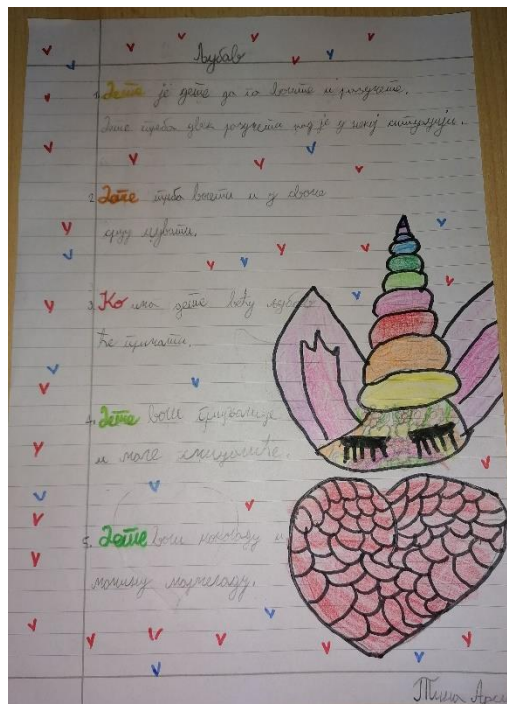 Љубав
1. Дете је дете да га волите и разумете.
Дете треба увек разумети кад је у некој ситуацији.
2. Дете треба волети и у свом
срцу чувати.
3. Ко има дете већу љубав
ће примати.
4. Дете воли
и мале
5. Дете воли чоколаду и
мамину мармеладу.
Тина